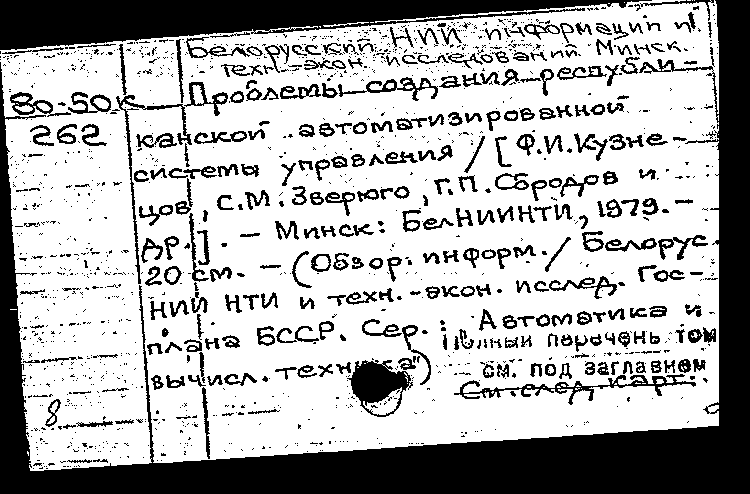 Белорусский НИИ информации и
техн.-экон. исследований. Минск.
80-50к Проблемы создания республи-
262 канской автоматизированной
системы управления / [Ф.И.Кузне-
цов, С.М.Зверюго, Г.П.Сбродов и
др.]. — Минск: БелНИИНТИ, 1979.—
20 см. — (Обзор. информ. / Белорус.
НИИ НТИ и техн.-экон. исслед. Гос-
плана БССР. Сер.: Автоматика и
Полный перечень том
вычисл. техника")
см. под заглавием
См. след. карт.
8